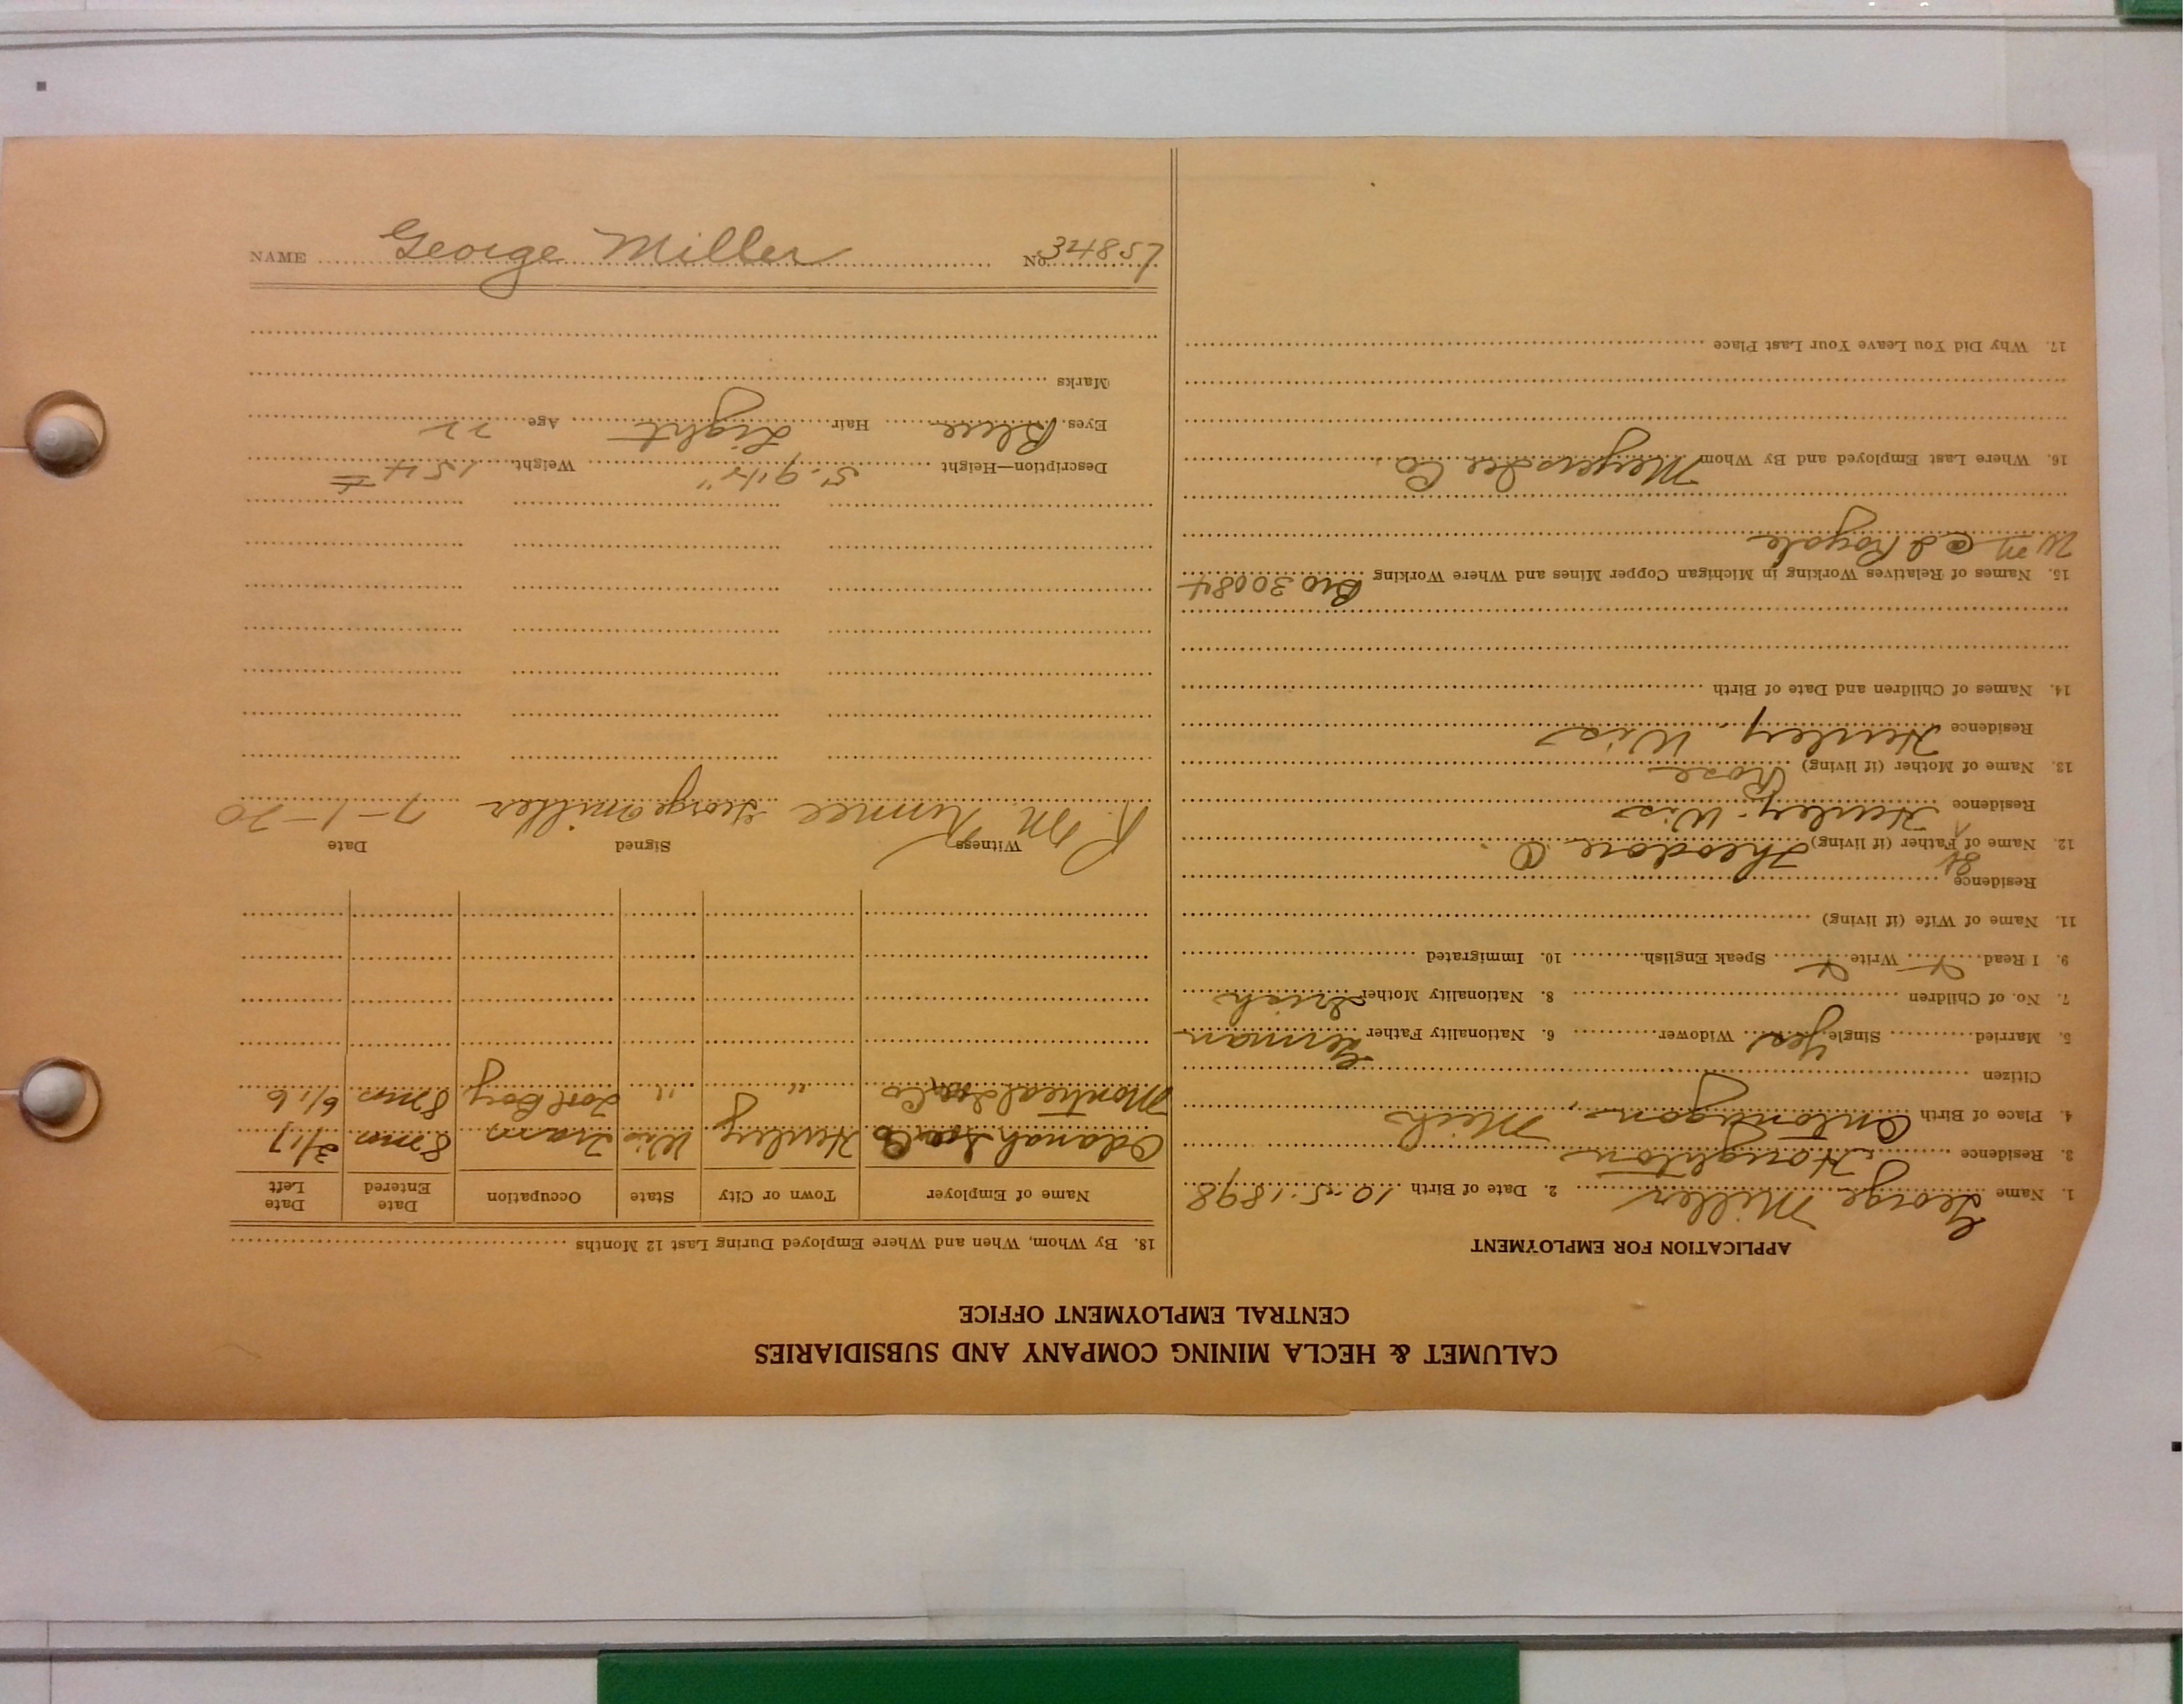 CALUMET & HECLA MINING COMPANY AND SUBSIDIARIES
CENTRAL EMPLOYMENT OFFICE
APPLICATION FOR EMPLOYMENT
1. Name George Miller 2. Date of Birth 10-5-1898
3. Residence Houghton
4. Place of Birth Ontonagon, Mich
Citizen
5. Married Single Yes Widower 6. Nationality Father German
7. No. of Children 8. Nationality Mother Irish
9. I Read Write Speak English 10. Immigrated
11. Name of Wife (if living)
Residence
12. Name of Father (if living) Theodore
Residence Hurley, Wis
13. Name of Mother (if living) Rose
Residence Hurley, Wis
14. Names of Children and Date of Birth
15. Names of Relatives Working in Michigan Copper Mines and Where Working Bro 30084
Wm @ I Royale
16. Where Last Employed and By Whom
17. Why Did You Leave Your Last Place
18. By Whom, When and Where Employed During Last 12 Months
Name of Employer Town or City State Occupation Date Entered Date Left
Odanah Hurley Wis Tram 8 mos 2/17
Montreal Co " " Tool Boy 8 mos 6/16
Witness Signed Date
R. M. George Miller 7-1-20
Description—Height 5' 9 1/2" Weight 154 #
Eyes Blue Hair Light Age 22
Marks
NAME George Miller No. 34857